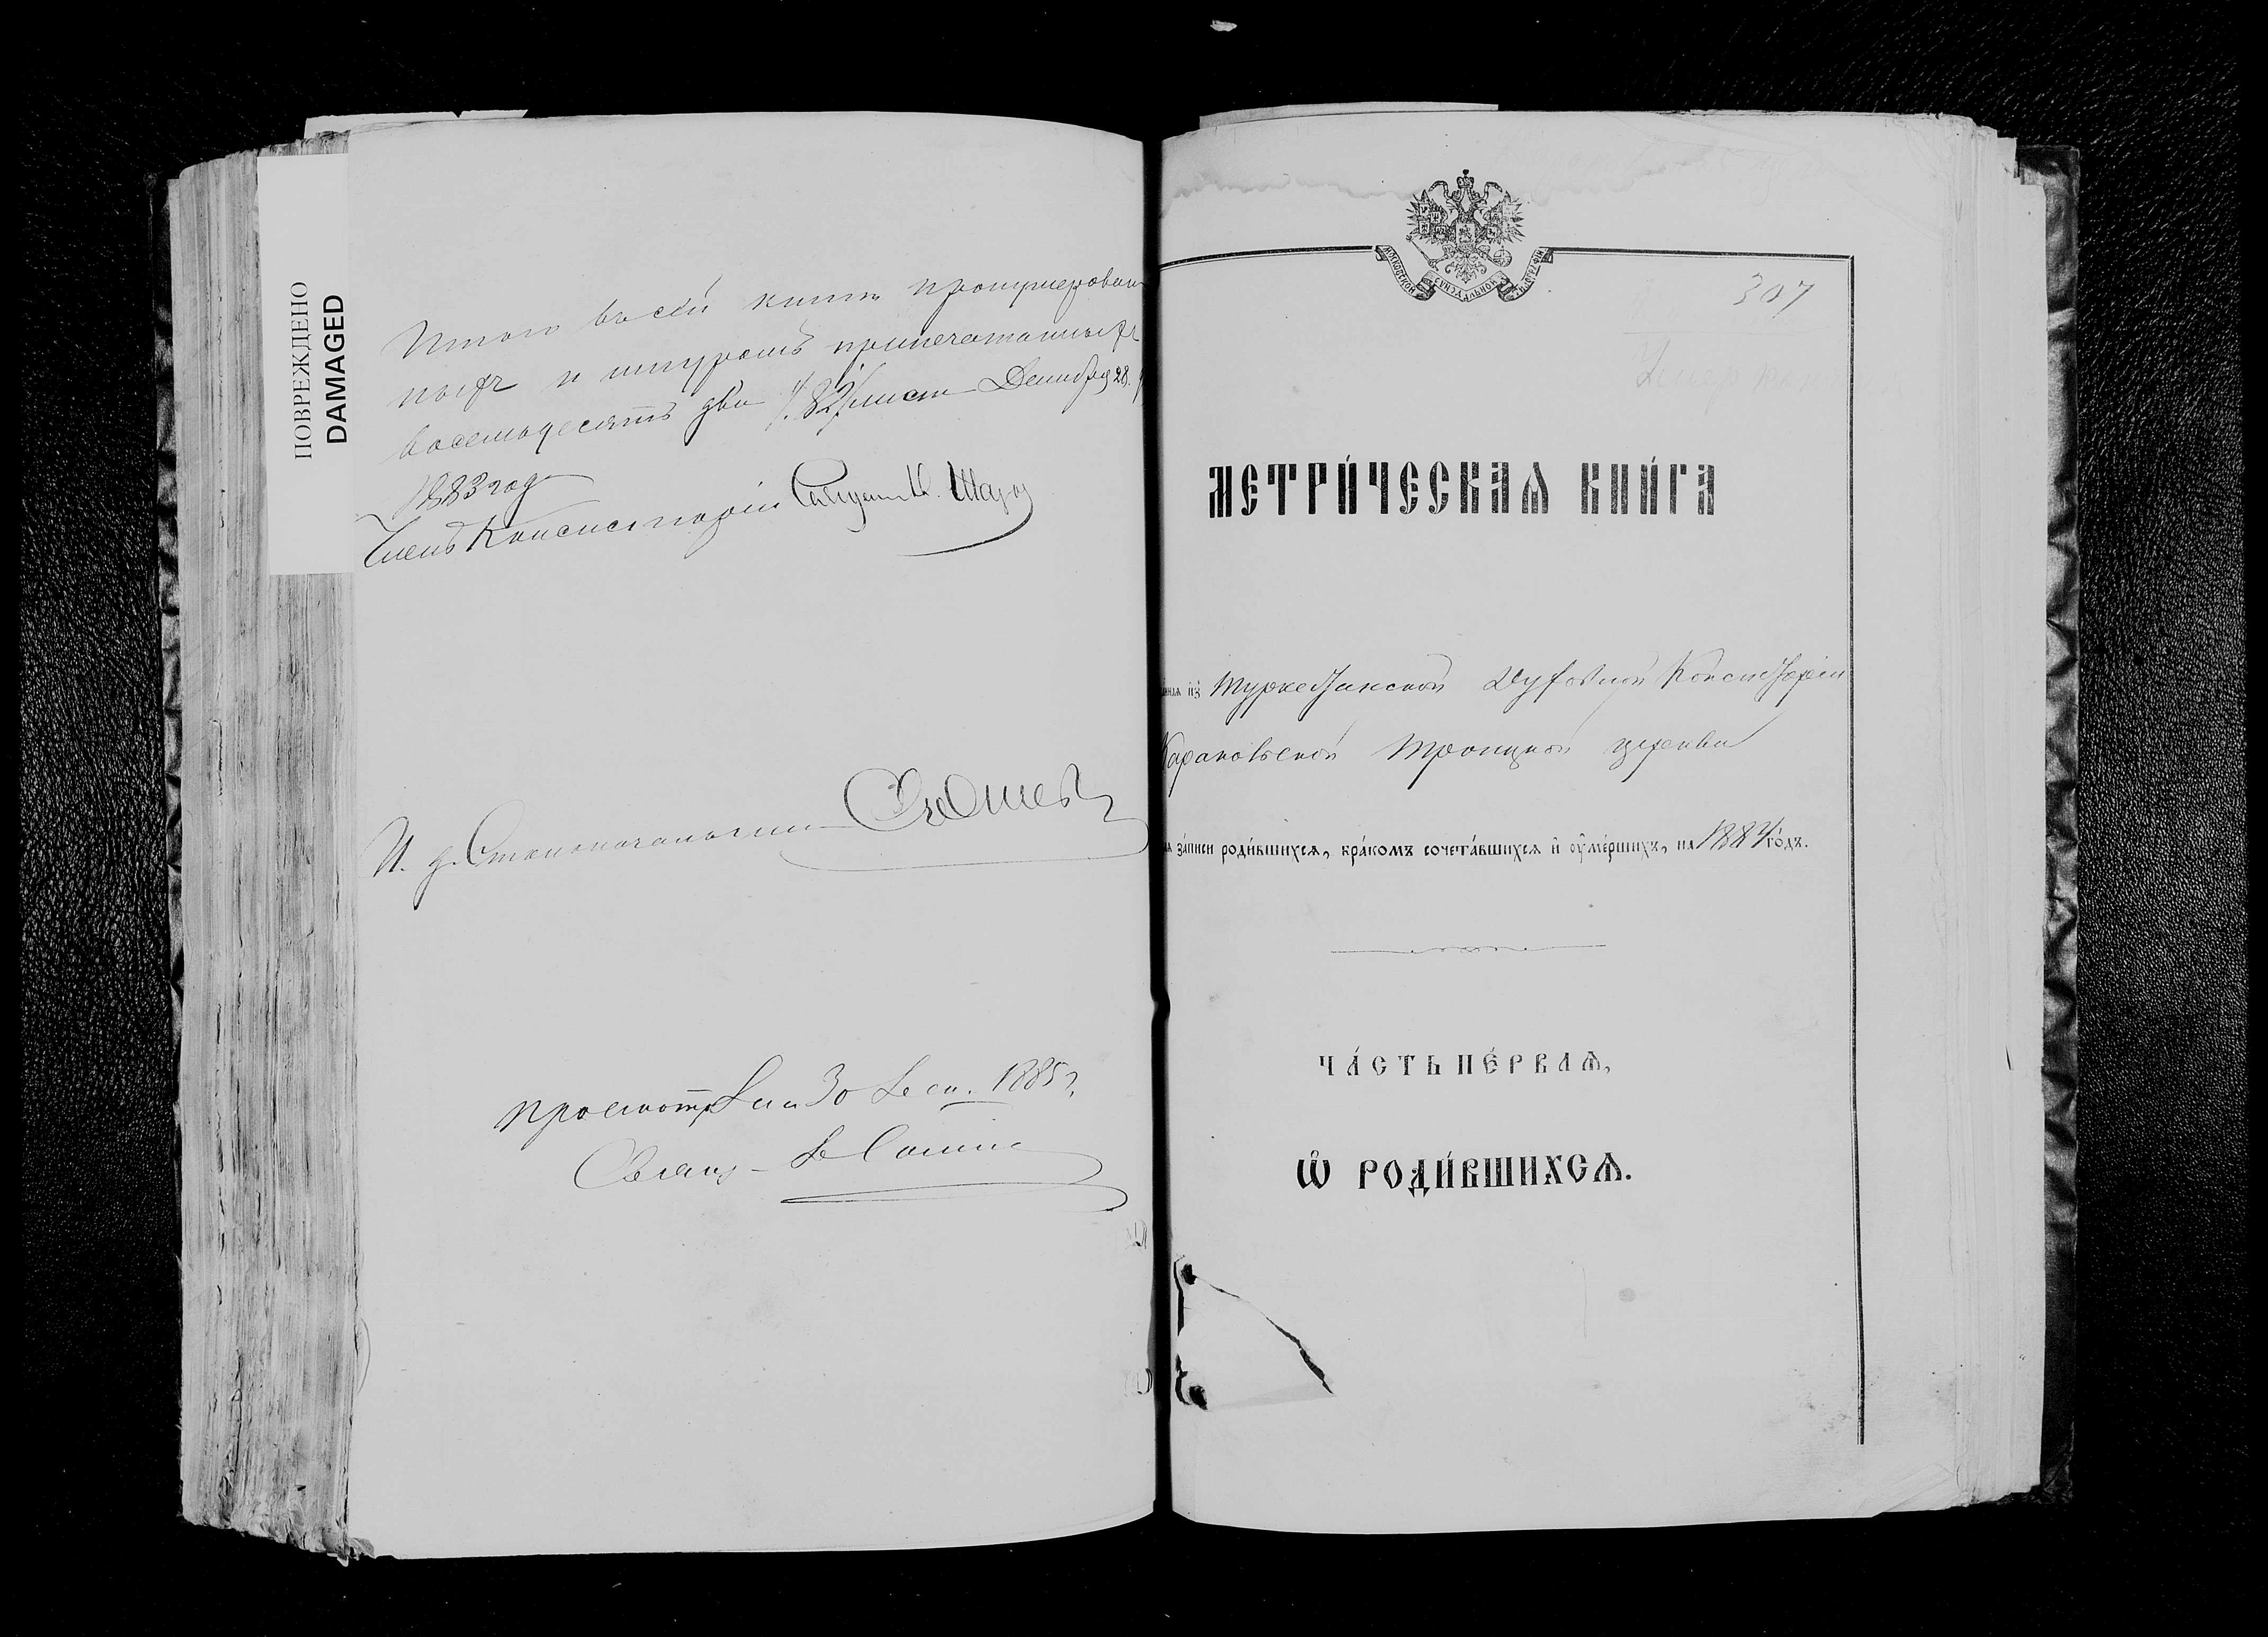 ПОВРЕЖДЕНО
DAMAGED
Итого въ сей книгѣ пронумерован
ныхъ и шнуромъ припечатанныхъ
восемьдесятъ два /82/ листа Декабря 28.
1883 года
Членъ Консисторіи Священникъ
И. д. Столоначальника
Просмотрѣна 30 1885 г.
МОСКОВСКОЙ СѴНОДАЛЬНОЙ ТѴПОГРАФІИ
307
МЕТРИ́ЧЕСКАѦ КНИ́ГА
и҆з̾ Туркестанской Духовной Консисторіи
Караковской Троицкой церкви
за́писи роди́вшихсѧ, бра́комъ сочета́вшихсѧ и҆ оу҆ме́ршихъ, на 1884 го́дъ.
ЧА́СТЬ ПЕ́РВАѦ,
Ѡ҆ РОДИ́ВШИХСѦ.